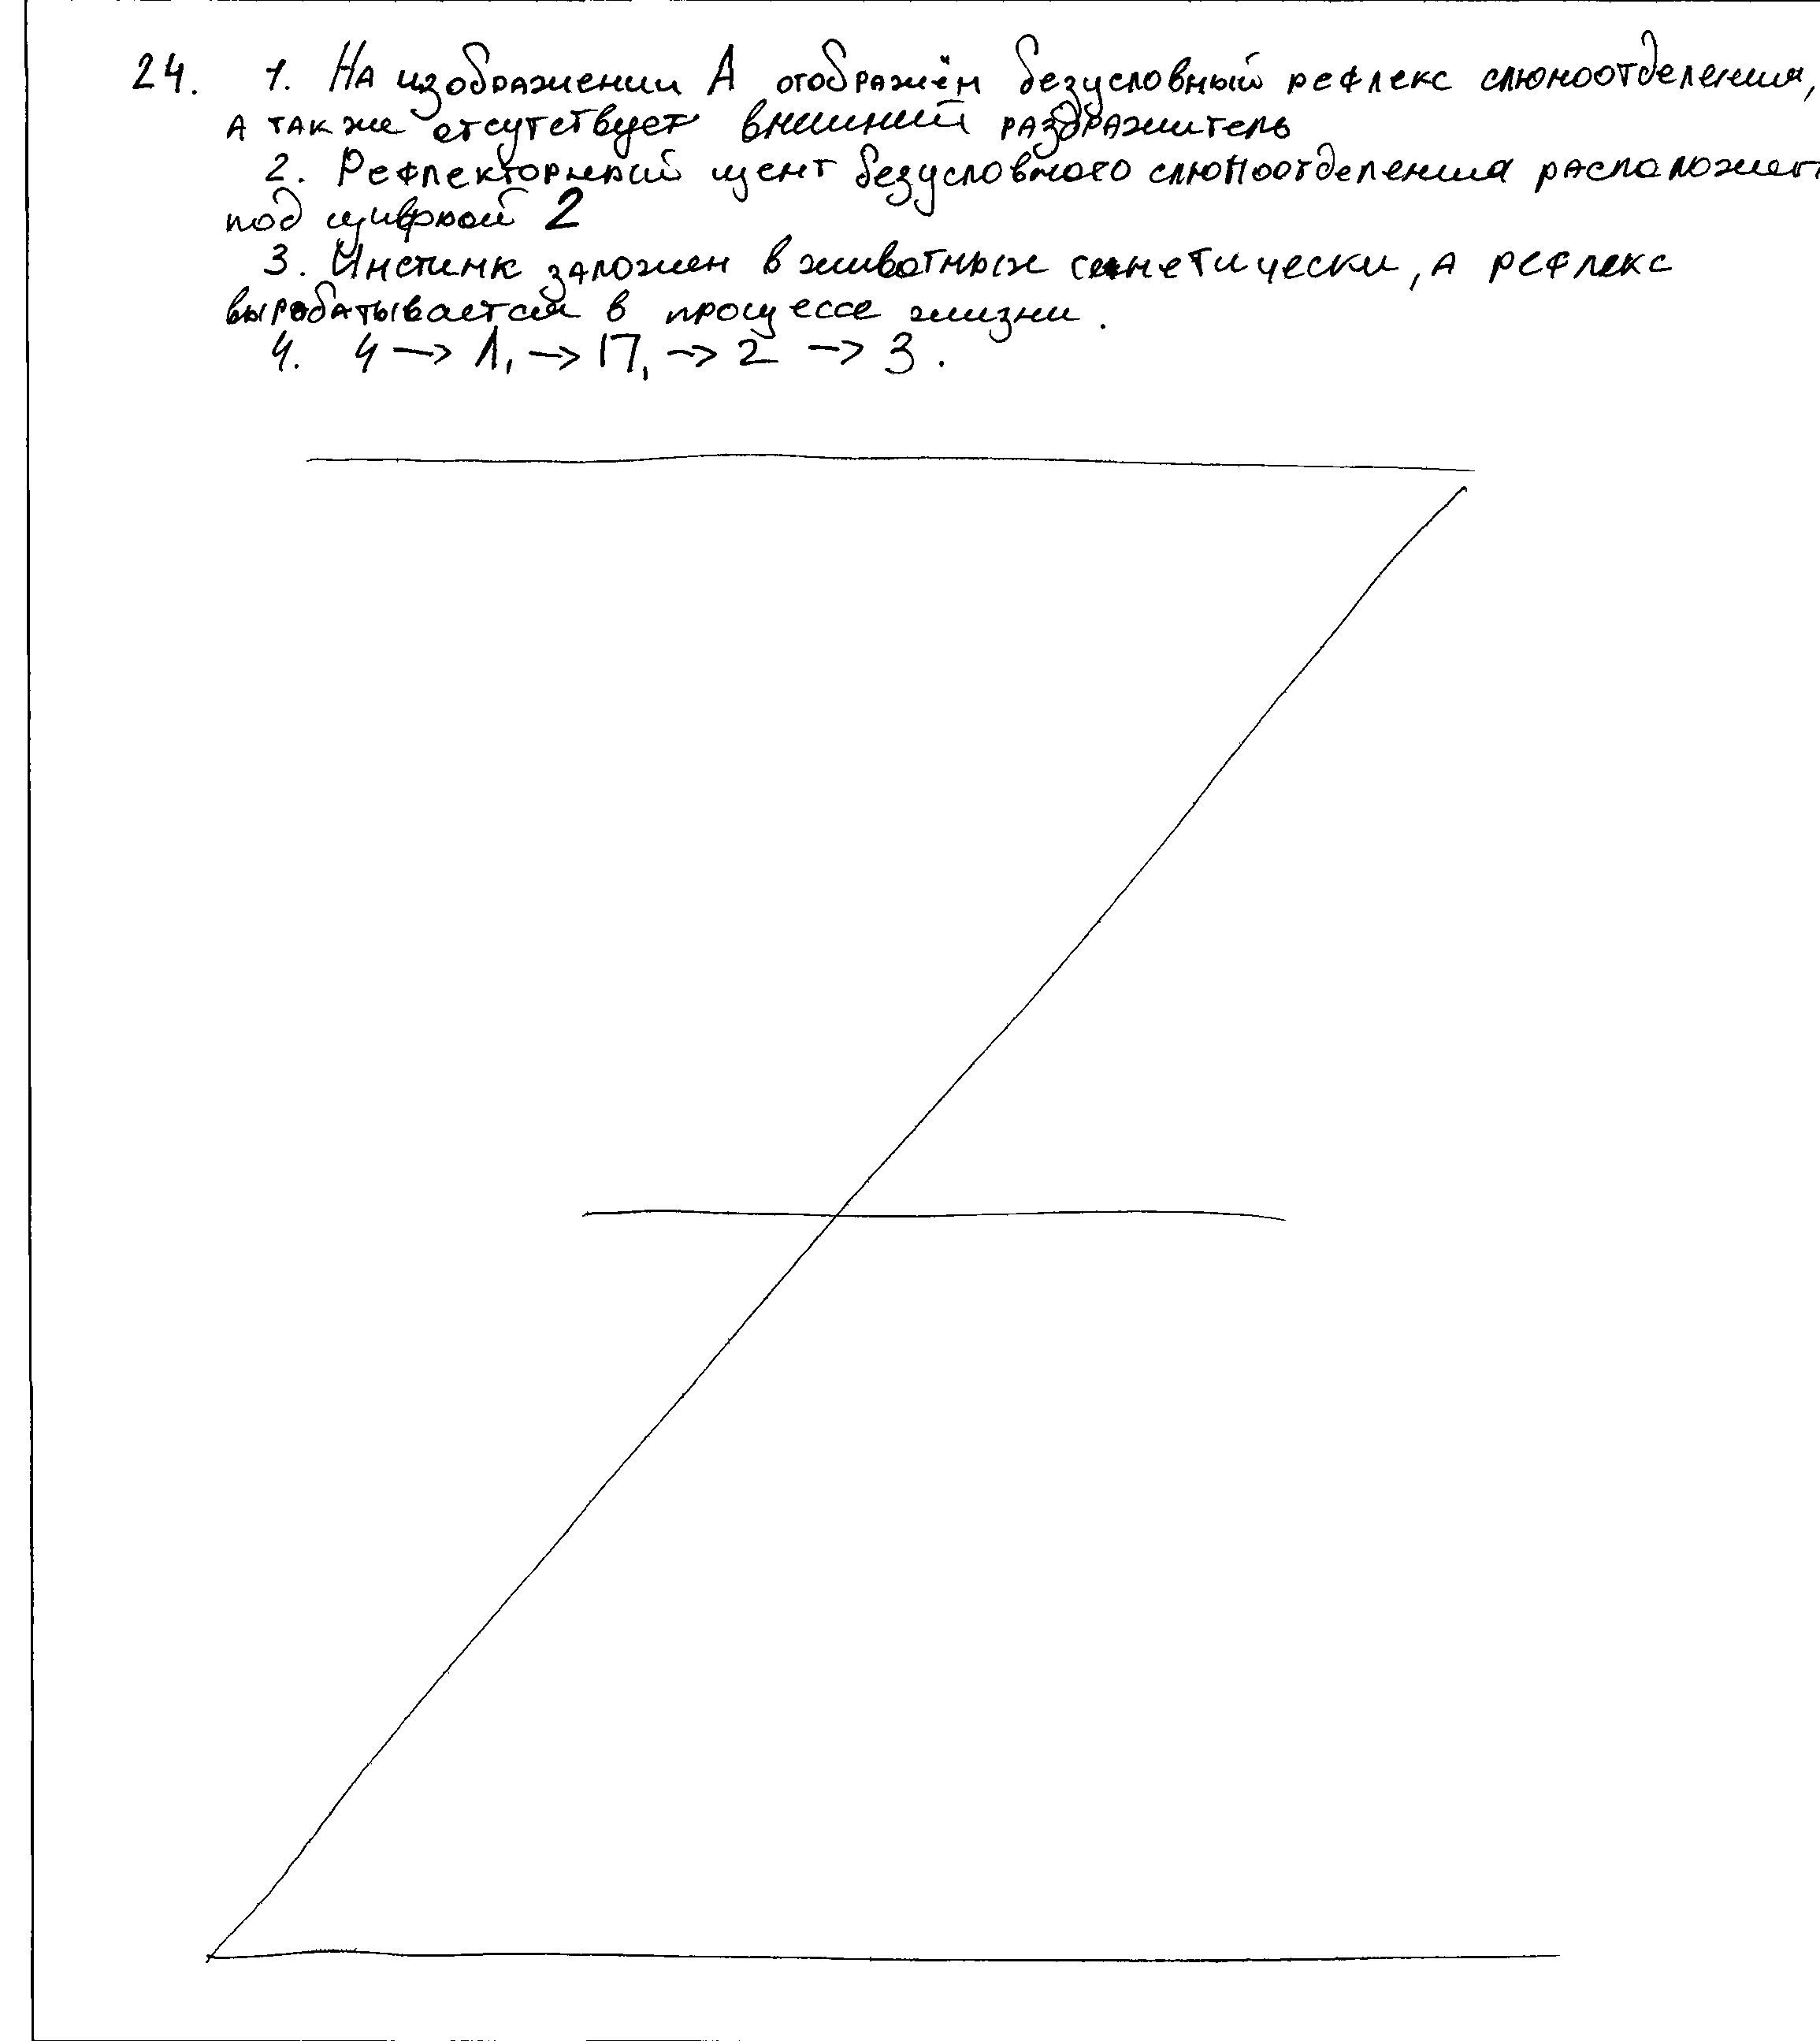 24. 1. На изображении А отображён безусловный рефлекс слюноотделения,
а так же отсутствует внешний раздражитель
2. Рефлекторный цент безусловного слюноотделения расположен
под цифрой 2
3. Инстинк заложен в животных генетически, а рефлекс
вырабатывается в процессе жизни.
4. 4 → 1, → П, → 2 → 3.